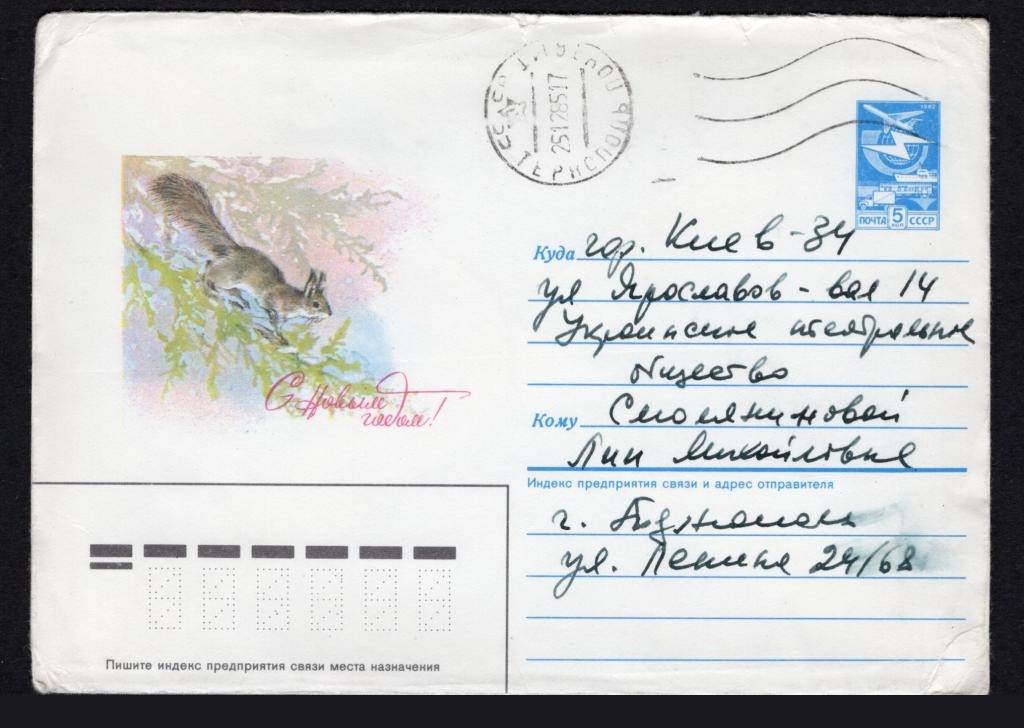 СССР ТЕРНОПОЛЬ
25128517
1982
ПОЧТА 5 КОП СССР
С Новым
годом!
Куда гор. Киев-34
ул Ярославов-вал 14
Украинское театральное
общество
Кому Смоляниновой
Лии Михайловне
Индекс предприятия связи и адрес отправителя
г.
ул. Ленина 24/68
Пишите индекс предприятия связи места назначения